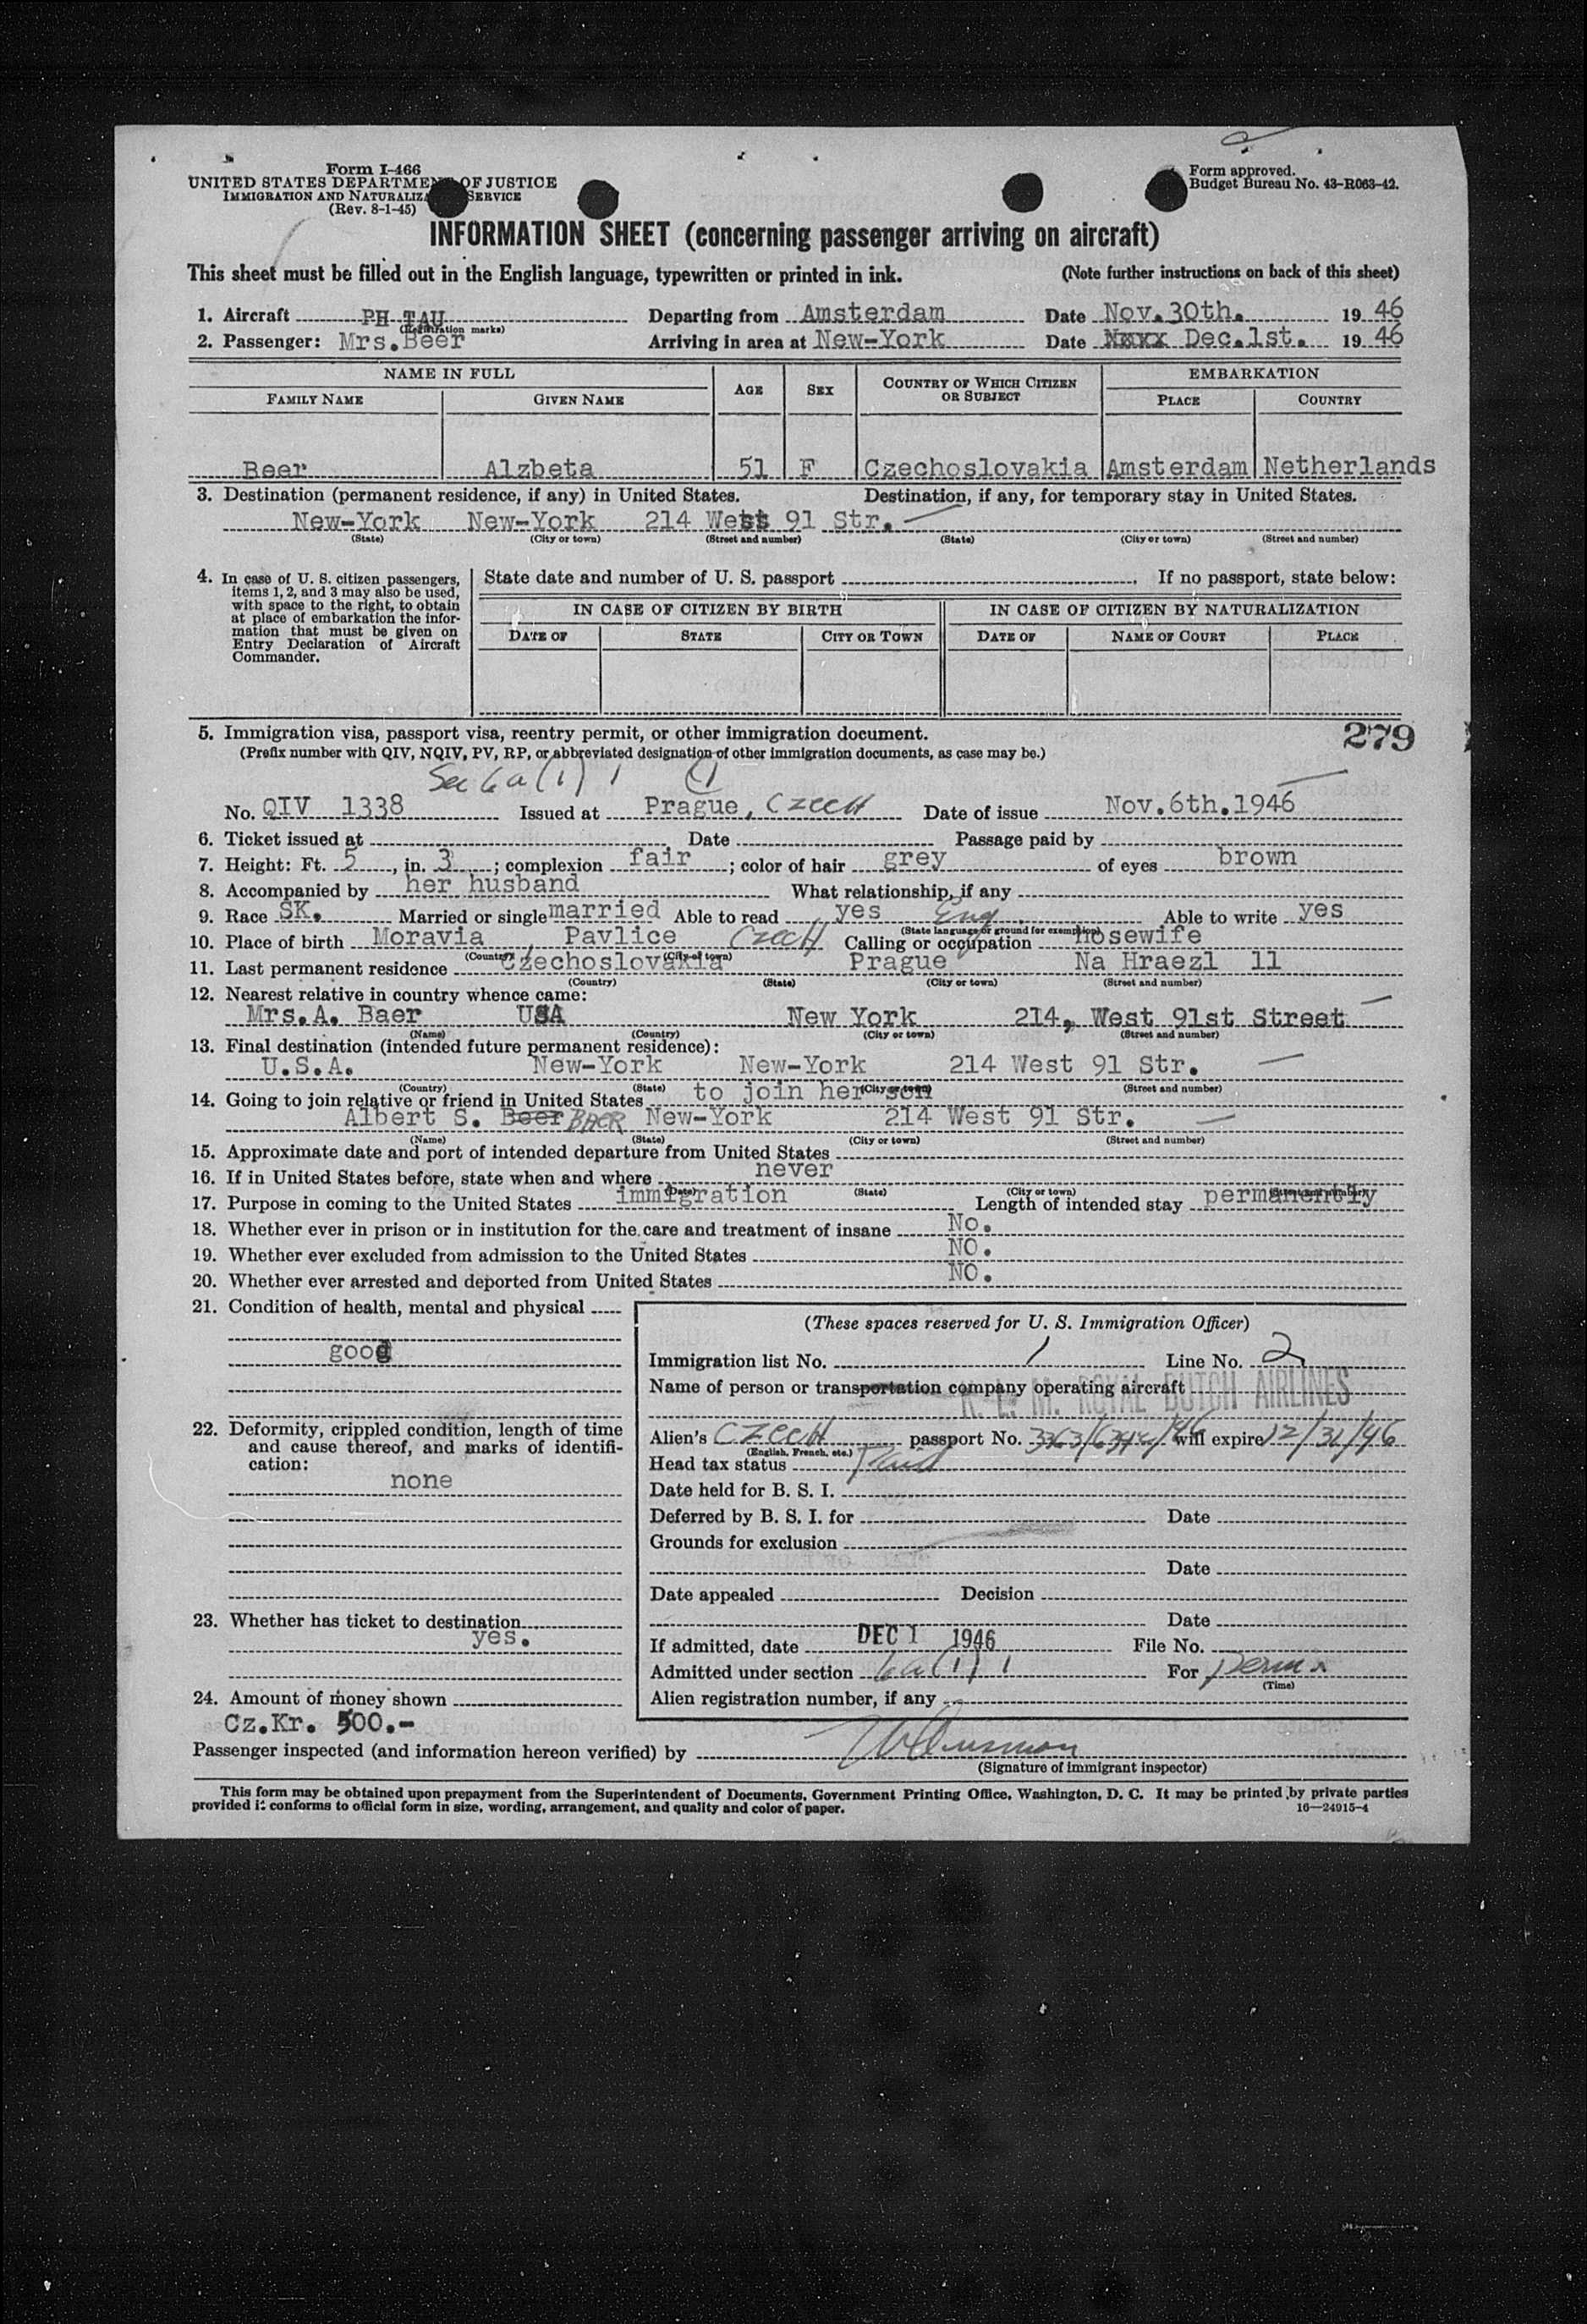 Form I-466
UNITED STATES DEPARTMENT OF JUSTICE
IMMIGRATION AND NATURALIZATION SERVICE
(Rev. 8-1-45)
Form approved.
Budget Bureau No. 43-R063-42.
INFORMATION SHEET (concerning passenger arriving on aircraft)
This sheet must be filled out in the English language, typewritten or printed in ink. (Note further instructions on back of this sheet)
1. Aircraft PH TAU Departing from Amsterdam Date Nov.30th. 19 46
(Registration marks)
2. Passenger: Mrs.Beer Arriving in area at New-York Date Dec.1st. 19 46
NAME IN FULL AGE SEX COUNTRY OF WHICH CITIZEN OR SUBJECT EMBARKATION
FAMILY NAME GIVEN NAME PLACE COUNTRY
Beer Alzbeta 51 F Czechoslovakia Amsterdam Netherlands
3. Destination (permanent residence, if any) in United States. Destination, if any, for temporary stay in United States.
New-York New-York 214 West 91 Str. —
(State) (City or town) (Street and number) (State) (City or town) (Street and number)
4. In case of U. S. citizen passengers, items 1, 2, and 3 may also be used, with space to the right, to obtain at place of embarkation the information that must be given on Entry Declaration of Aircraft Commander.
State date and number of U. S. passport . If no passport, state below:
IN CASE OF CITIZEN BY BIRTH IN CASE OF CITIZEN BY NATURALIZATION
DATE OF STATE CITY OR TOWN DATE OF NAME OF COURT PLACE
5. Immigration visa, passport visa, reentry permit, or other immigration document. 279
(Prefix number with QIV, NQIV, PV, RP, or abbreviated designation of other immigration documents, as case may be.)
Sec 6a(1) 1
No. QIV 1338 Issued at Prague, CzecH Date of issue Nov.6th.1946
6. Ticket issued at Date Passage paid by
7. Height: Ft. 5, in. 3; complexion fair; color of hair grey of eyes brown
8. Accompanied by her husband What relationship, if any
9. Race SK. Married or single married Able to read yes Eng. Able to write yes
(State language or ground for exemption)
10. Place of birth Moravia, Pavlice CzecH Calling or occupation hosewife
(Country) (City or town)
11. Last permanent residence Czechoslovakia Prague Na Hraezl 11
(Country) (State) (City or town) (Street and number)
12. Nearest relative in country whence came:
Mrs.A. Baer USA New York 214, West 91st Street
(Name) (Country) (City or town) (Street and number)
13. Final destination (intended future permanent residence):
U.S.A. New-York New-York 214 West 91 Str. —
(Country) (State) (City or town) (Street and number)
14. Going to join relative or friend in United States to join her son
Albert S. Beer BAER New-York 214 West 91 Str. —
(Name) (State) (City or town) (Street and number)
15. Approximate date and port of intended departure from United States
16. If in United States before, state when and where never
(Date) (State) (City or town) (Street and number)
17. Purpose in coming to the United States immigration Length of intended stay permanently
18. Whether ever in prison or in institution for the care and treatment of insane No.
19. Whether ever excluded from admission to the United States NO.
20. Whether ever arrested and deported from United States NO.
21. Condition of health, mental and physical
good
22. Deformity, crippled condition, length of time and cause thereof, and marks of identification:
none
23. Whether has ticket to destination
yes.
24. Amount of money shown
Cz.Kr. 500.-
(These spaces reserved for U. S. Immigration Officer)
Immigration list No. 1 Line No. 2
Name of person or transportation company operating aircraft
K. L. M. ROYAL DUTCH AIRLINES
Alien's CzecH passport No. will expire 12/31/46
(English, French, etc.)
Head tax status Paid
Date held for B. S. I.
Deferred by B. S. I. for Date
Grounds for exclusion
Date
Date appealed Decision
Date
If admitted, date DEC 1 1946 File No.
Admitted under section 6a(1) 1 For perm
(Time)
Alien registration number, if any
Passenger inspected (and information hereon verified) by
(Signature of immigrant inspector)
This form may be obtained upon prepayment from the Superintendent of Documents, Government Printing Office, Washington, D. C. It may be printed by private parties
provided it conforms to official form in size, wording, arrangement, and quality and color of paper. 16—24915-4